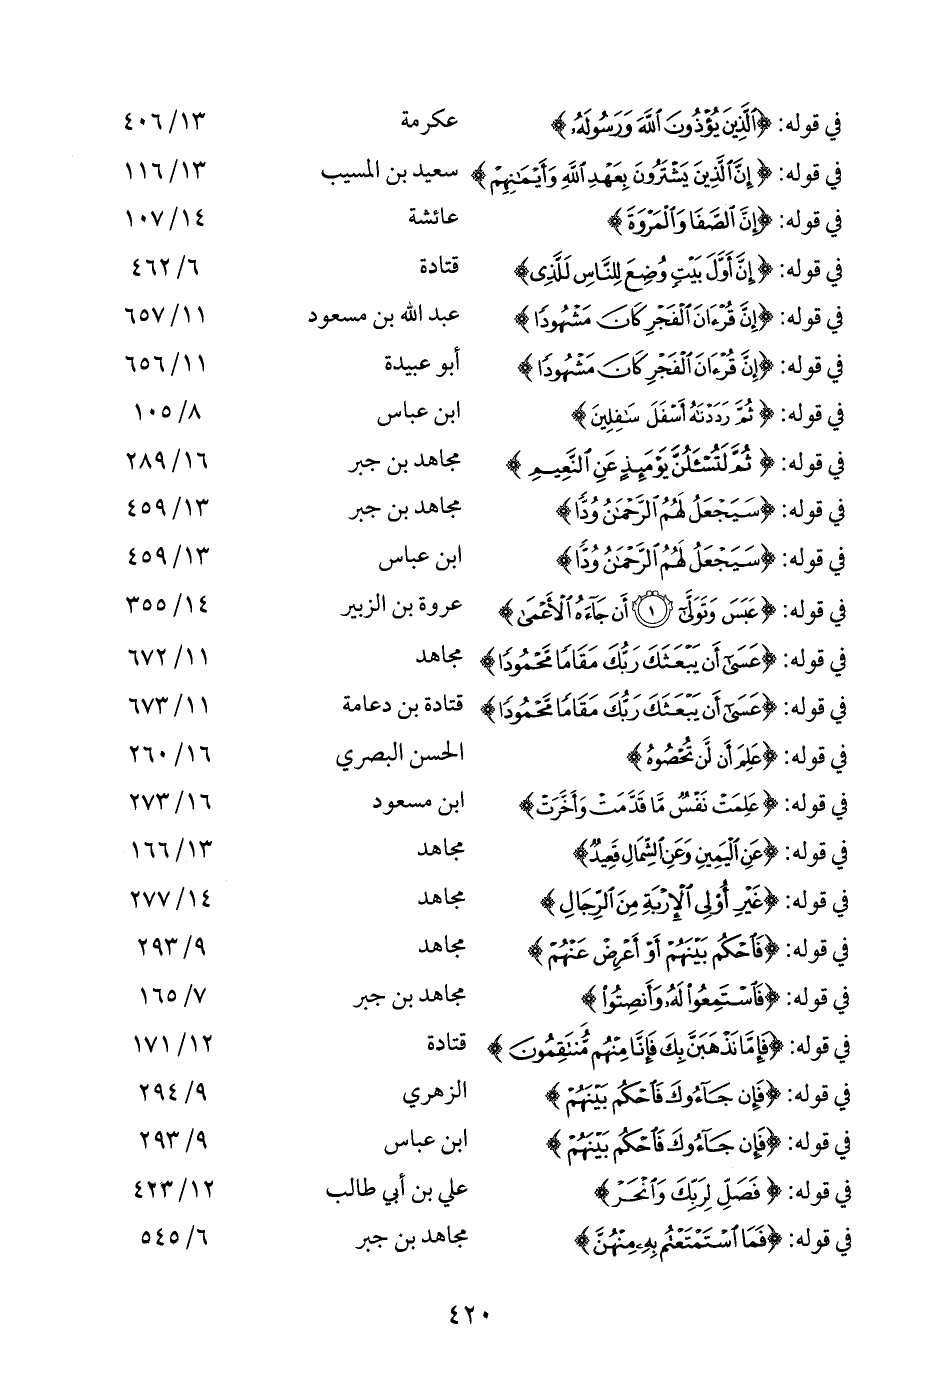 في قوله: ﴿ٱلَّذِينَ يُؤْذُونَ ٱللَّهَ وَرَسُولَهُۥ﴾ عكرمة ٤٠٦/١٣
في قوله: ﴿إِنَّ ٱلَّذِينَ يَشْتَرُونَ بِعَهْدِ ٱللَّهِ وَأَيْمَٰنِهِمْ﴾ سعيد بن المسيب ١١٦/١٣
في قوله: ﴿إِنَّ ٱلصَّفَا وَٱلْمَرْوَةَ﴾ عائشة ١٠٧/١٤
في قوله: ﴿إِنَّ أَوَّلَ بَيْتٍ وُضِعَ لِلنَّاسِ لَلَّذِى﴾ قتادة ٤٦٢/٦
في قوله: ﴿إِنَّ قُرْءَانَ ٱلْفَجْرِ كَانَ مَشْهُودًا﴾ عبد الله بن مسعود ٦٥٧/١١
في قوله: ﴿إِنَّ قُرْءَانَ ٱلْفَجْرِ كَانَ مَشْهُودًا﴾ أبو عبيدة ٦٥٦/١١
في قوله: ﴿ثُمَّ رَدَدْنَٰهُ أَسْفَلَ سَٰفِلِينَ﴾ ابن عباس ١٠٥/٨
في قوله: ﴿ثُمَّ لَتُسْـَٔلُنَّ يَوْمَئِذٍ عَنِ ٱلنَّعِيمِ﴾ مجاهد بن جبر ٢٨٩/١٦
في قوله: ﴿سَيَجْعَلُ لَهُمُ ٱلرَّحْمَٰنُ وُدًّا﴾ مجاهد بن جبر ٤٥٩/١٣
في قوله: ﴿سَيَجْعَلُ لَهُمُ ٱلرَّحْمَٰنُ وُدًّا﴾ ابن عباس ٤٥٩/١٣
في قوله: ﴿عَبَسَ وَتَوَلَّىٰٓ ١ أَن جَآءَهُ ٱلْأَعْمَىٰ﴾ عروة بن الزبير ٣٥٥/١٤
في قوله: ﴿عَسَىٰٓ أَن يَبْعَثَكَ رَبُّكَ مَقَامًا مَّحْمُودًا﴾ مجاهد ٦٧٢/١١
في قوله: ﴿عَسَىٰٓ أَن يَبْعَثَكَ رَبُّكَ مَقَامًا مَّحْمُودًا﴾ قتادة بن دعامة ٦٧٣/١١
في قوله: ﴿عَلِمَ أَن لَّن تُحْصُوهُ﴾ الحسن البصري ٢٦٠/١٦
في قوله: ﴿عَلِمَتْ نَفْسٌ مَّا قَدَّمَتْ وَأَخَّرَتْ﴾ ابن مسعود ٢٧٣/١٦
في قوله: ﴿عَنِ ٱلْيَمِينِ وَعَنِ ٱلشِّمَالِ قَعِيدٌ﴾ مجاهد ١٦٦/١٣
في قوله: ﴿غَيْرِ أُو۟لِى ٱلْإِرْبَةِ مِنَ ٱلرِّجَالِ﴾ مجاهد ٢٧٧/١٤
في قوله: ﴿فَٱحْكُم بَيْنَهُمْ أَوْ أَعْرِضْ عَنْهُمْ﴾ مجاهد ٢٩٣/٩
في قوله: ﴿فَٱسْتَمِعُوا۟ لَهُۥ وَأَنصِتُوا۟﴾ مجاهد بن جبر ١٦٥/٧
في قوله: ﴿فَإِمَّا نَذْهَبَنَّ بِكَ فَإِنَّا مِنْهُم مُّنتَقِمُونَ﴾ قتادة ١٧١/١٢
في قوله: ﴿فَإِن جَآءُوكَ فَٱحْكُم بَيْنَهُمْ﴾ الزهري ٢٩٤/٩
في قوله: ﴿فَإِن جَآءُوكَ فَٱحْكُم بَيْنَهُمْ﴾ ابن عباس ٢٩٣/٩
في قوله: ﴿فَصَلِّ لِرَبِّكَ وَٱنْحَرْ﴾ علي بن أبي طالب ٤٢٣/١٢
في قوله: ﴿فَمَا ٱسْتَمْتَعْتُم بِهِۦ مِنْهُنَّ﴾ مجاهد بن جبر ٥٤٥/٦
٤٢٠